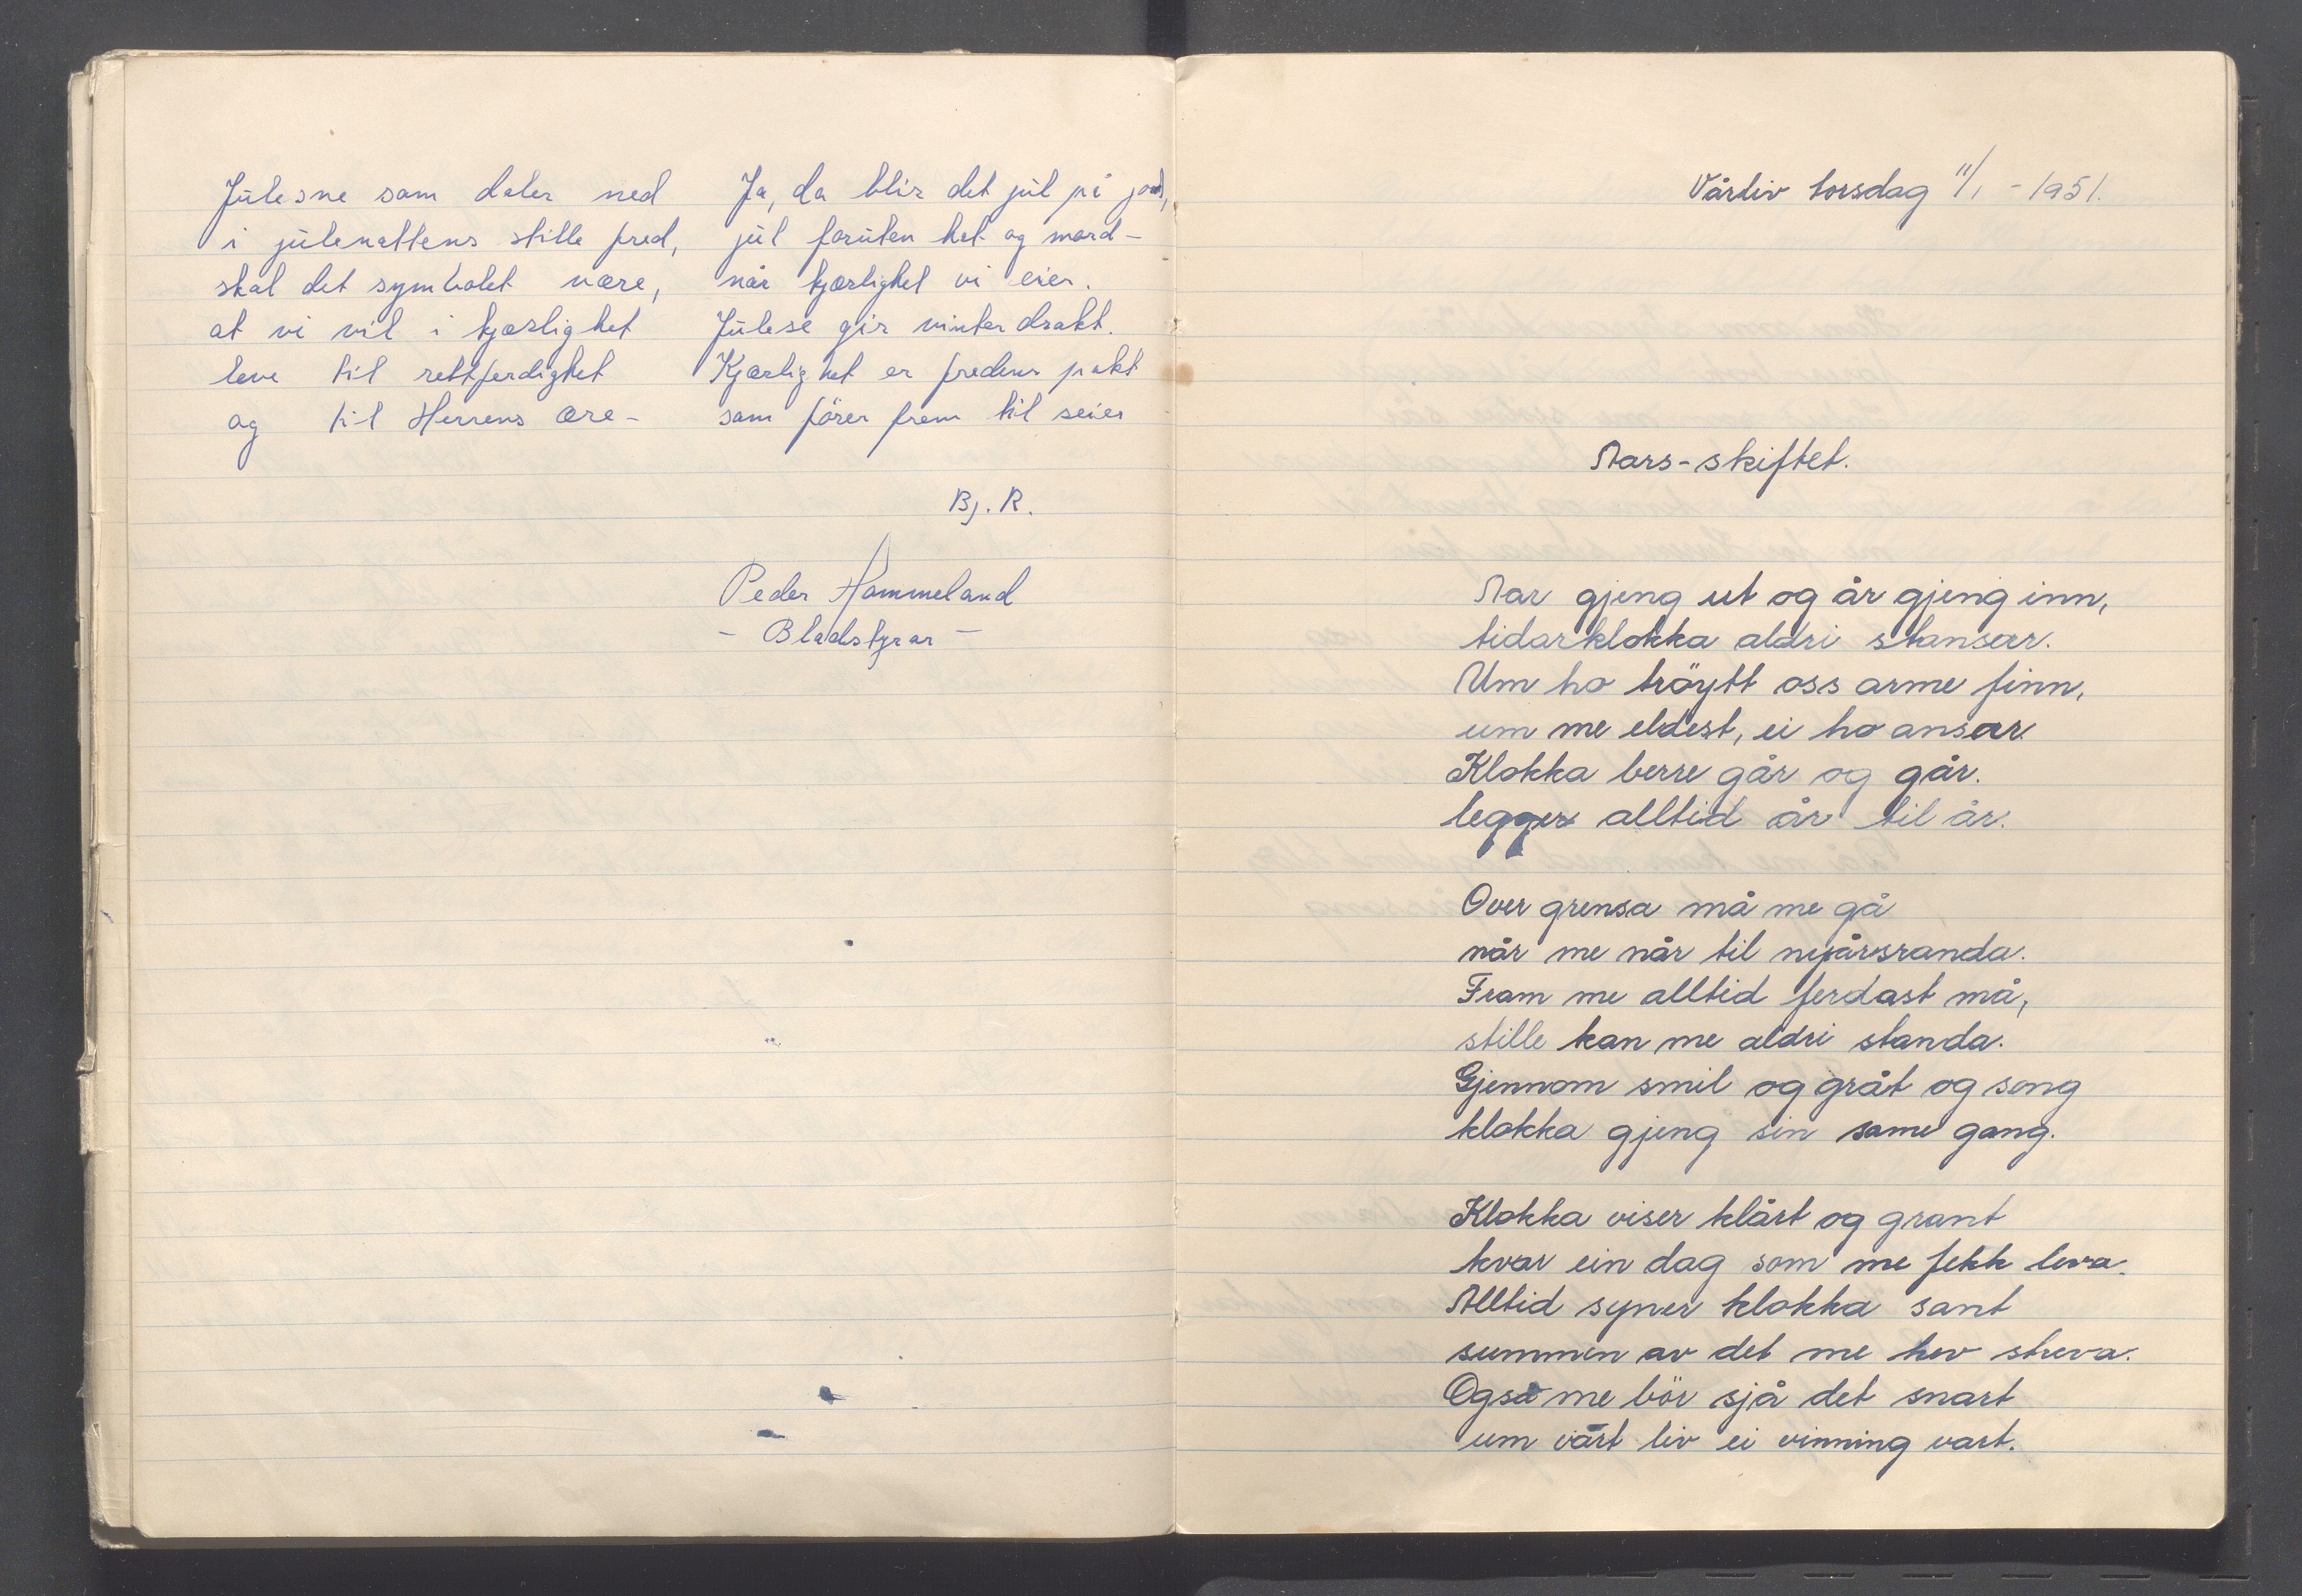 Julesne som daler ned
i julenattens stille fred,
skal det symbolet være,
at vi vil i kjærlighet
leve til rettferdighet
og til Herrens ære -
Ja, da blir det jul på jord,
jul foruten hat og mord -
når kjærlighet vi eier.
Julesne gir vinterdrakt.
Kjærlighet er fredens pakt
som förer frem til seier
Bj. R.
Peder Hammeland
- Bladstyrar -
Vårliv torsdag 11/1 - 1951.
Aars-skiftet.
Aar gjeng ut og år gjeng inn,
tidarklokka aldri stansar.
Um ho tröytt oss arme finn,
um me eldest, ei ho ansar.
Klokka berre går og går.
legger alltid år til år.
Over grensa må me gå
når me når til nyårsranda.
Fram me alltid ferdast må,
stille kan me aldri standa.
Gjennom smil og gråt og song
klokka gjeng sin same gang.
Klokka viser klårt og grant
kvar ein dag som me fekk leva.
Alltid syner klokka sant
summen av det me hev streva.
Også me bör sjå det snart
um vårt liv ei vinning vart.